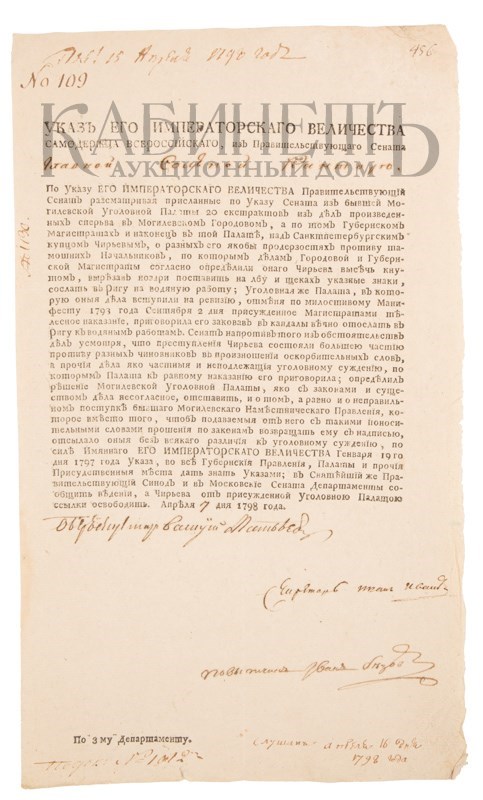 15 Апреля 1798 года
456
No 109
КАБИНЕТЪ
АУКЦИОННЫЙ ДОМ
УКАЗЪ ЕГО ИМПЕРАТОРСКАГО ВЕЛИЧЕСТВА
САМОДЕРЖЦА ВСЕРОССИЙСКАГО, изъ Правительствующаго Сената
Главной
По Указу ЕГО ИМПЕРАТОРСКАГО ВЕЛИЧЕСТВА Правительствующій
Сенатъ разсматривая присланные по Указу Сената изъ бывшей Мо-
гилевской Уголовной Палаты 20 екстрактовъ изъ дѣлъ произведен-
ныхъ сперьва въ Могилевскомъ Городовомъ, а по томъ Губернскомъ
Магистратахъ и наконецъ въ той Палатѣ, надъ Санктпетербургскимъ
купцомъ Чирьевымъ, о разныхъ его якобы продерзостяхъ противу та-
мошнихъ Начальниковъ, по которымъ дѣламъ Городовой и Губерн-
ской Магистраты согласно опредѣлили онаго Чирьева высѣчь кну-
томъ, вырѣзавъ ноздри поставить на лбу и щекахъ указные знаки,
сослать въ Ригу на водяную работу; Уголовная же Палата, въ кото-
рую оныя дѣла вступили на ревизію, отмѣня по милостивому Мани-
фесту 1793 года Сентября 2 дня присужденное Магистратами тѣ-
лесное наказаніе, приговорила его заковавъ въ кандалы вѣчно отослать въ
Ригу къ водянымъ работамъ. Сенатъ напротивъ того изъ обстоятельствъ
дѣлъ усмотря, что преступленія Чирьева состояли большею частію
противу разныхъ чиновниковъ въ произношеніи оскорбительныхъ словъ,
а прочія дѣла яко частныя и неподлежащія уголовному сужденію, по
которымъ Палата къ равному наказанію его приговорила; опредѣлилъ
рѣшеніе Могилевской Уголовной Палаты, яко съ законами и суще-
ствомъ дѣла несогласное, отставить, и о томъ, а равно и о неправиль-
номъ поступкѣ бывшаго Могилевскаго Намѣстническаго Правленія, ко-
торое вмѣсто того, чтобъ подаваемыя отъ него съ такими поноси-
тельными словами прошенія по законамъ возвращать ему съ надписью,
отсылало оныя безъ всякаго различія къ уголовному сужденію, по
силѣ Имяннаго ЕГО ИМПЕРАТОРСКАГО ВЕЛИЧЕСТВА Генваря 19го
дня 1797 года Указа, во всѣ Губернскія Правленія, Палаты и прочія
Присудственныя мѣста дать знать Указами; въ Святѣйшій же Пра-
вительствующій Синодъ и въ Московскіе Сената Департаменты со-
общить вѣденіи, а Чирьева отъ присужденной Уголовною Палатою
ссылки освободить. Апрѣля 7 дня 1798 года.
Секретарь
По 3му Департаменту.
Слушанъ апреля 16 дня
1798 года